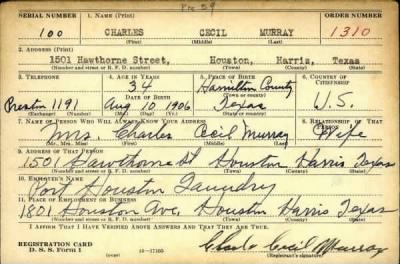 Pre 59
SERIAL NUMBER 1. NAME (Print) ORDER NUMBER
100 CHARLES CECIL MURRAY 1310
(First) (Middle) (Last)
2. ADDRESS (Print)
1501 Hawthorne Street, Houston, Harris, Texas
(Number and street or R. F. D. number) (Town) (County) (State)
3. TELEPHONE 4. AGE IN YEARS 5. PLACE OF BIRTH 6. COUNTRY OF CITIZENSHIP
34 Hamilton County
DATE OF BIRTH (Town or county)
Preston 1191 Aug 10 1906 Texas U.S.
(Exchange) (Number) (Mo.) (Day) (Yr.) (State or country)
7. NAME OF PERSON WHO WILL ALWAYS KNOW YOUR ADDRESS 8. RELATIONSHIP OF THAT PERSON
Mrs. Charles Cecil Murray Wife
(Mr., Mrs., Miss) (First) (Middle) (Last)
9. ADDRESS OF THAT PERSON
1501 Hawthorne St Houston Harris Texas
(Number and street or R. F. D. number) (Town) (County) (State)
10. EMPLOYER'S NAME
Port Houston Laundry
11. PLACE OF EMPLOYMENT OR BUSINESS
1801 Houston Ave. Houston Harris Texas
(Number and street or R. F. D. number) (Town) (County) (State)
I AFFIRM THAT I HAVE VERIFIED ABOVE ANSWERS AND THAT THEY ARE TRUE.
REGISTRATION CARD
D. S. S. Form 1 Charles Cecil Murray
(over) (Registrant's signature)